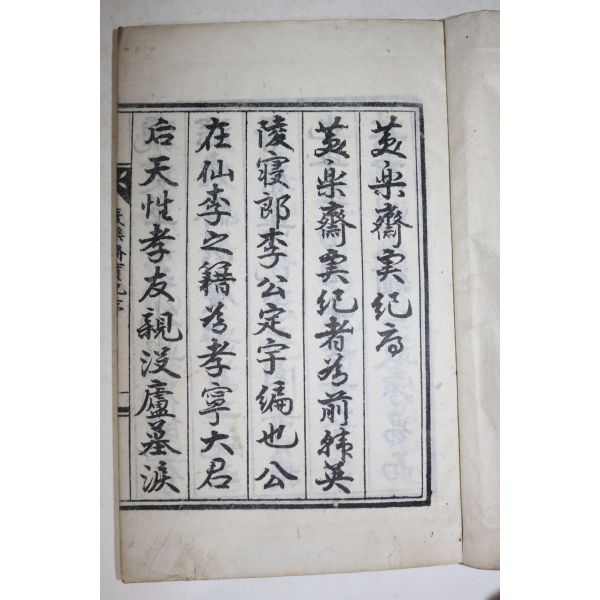 美楽齋実紀序
美楽齋実紀者为前韓英
陵寢郎李公定宇編也公
在仙李之籍为孝寧大君
后天性孝友親没廬墓淚
樂齋實紀序
一